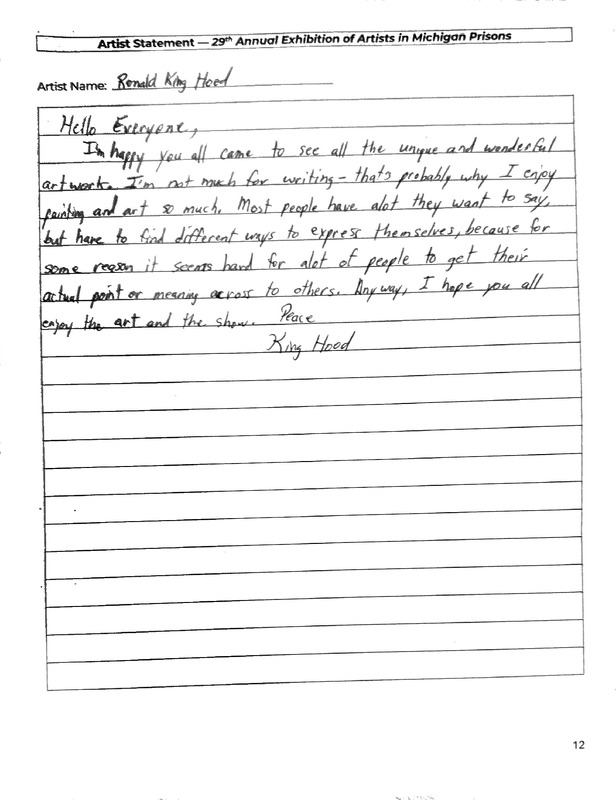 Artist Statement — 29th Annual Exhibition of Artists in Michigan Prisons
Artist Name: Ronald King Hood
Hello Everyone,
I'm happy you all came to see all the unique and wonderful
artwork. I'm not much for writing - thats probably why I enjoy
painting and art so much. Most people have alot they want to say,
but have to find different ways to express themselves, because for
some reason it seems hard for alot of people to get their
actual point or meaning across to others. Anyway, I hope you all
enjoy the art and the show. Peace
King Hood
12